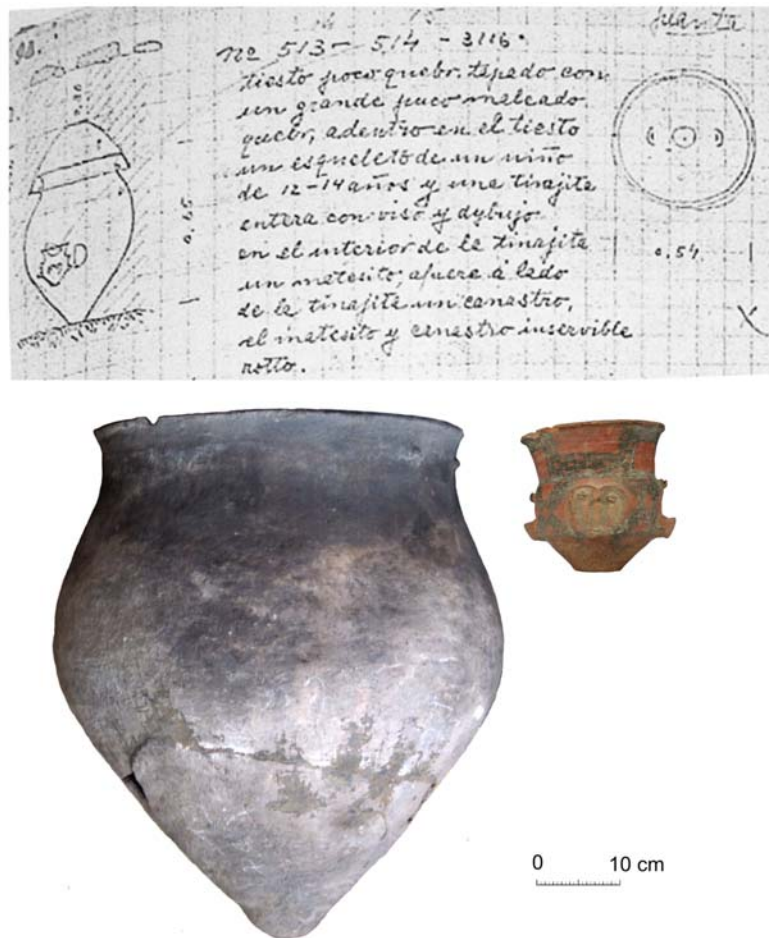 planta
nº 513 - 514 - 3116.
tiesto poco quebr. tapado con
un grande puco maleado
quebr, adentro en el tiesto
un esqueleto de un niño
de 12-14 años y una tinajita
entera con viso y dybujo
en el interior de la tinajita
un matesito, afuera á lado
de la tinajita un canastro,
el matesito y canastro inservible
rotto.
0.65
0.54
0 10 cm